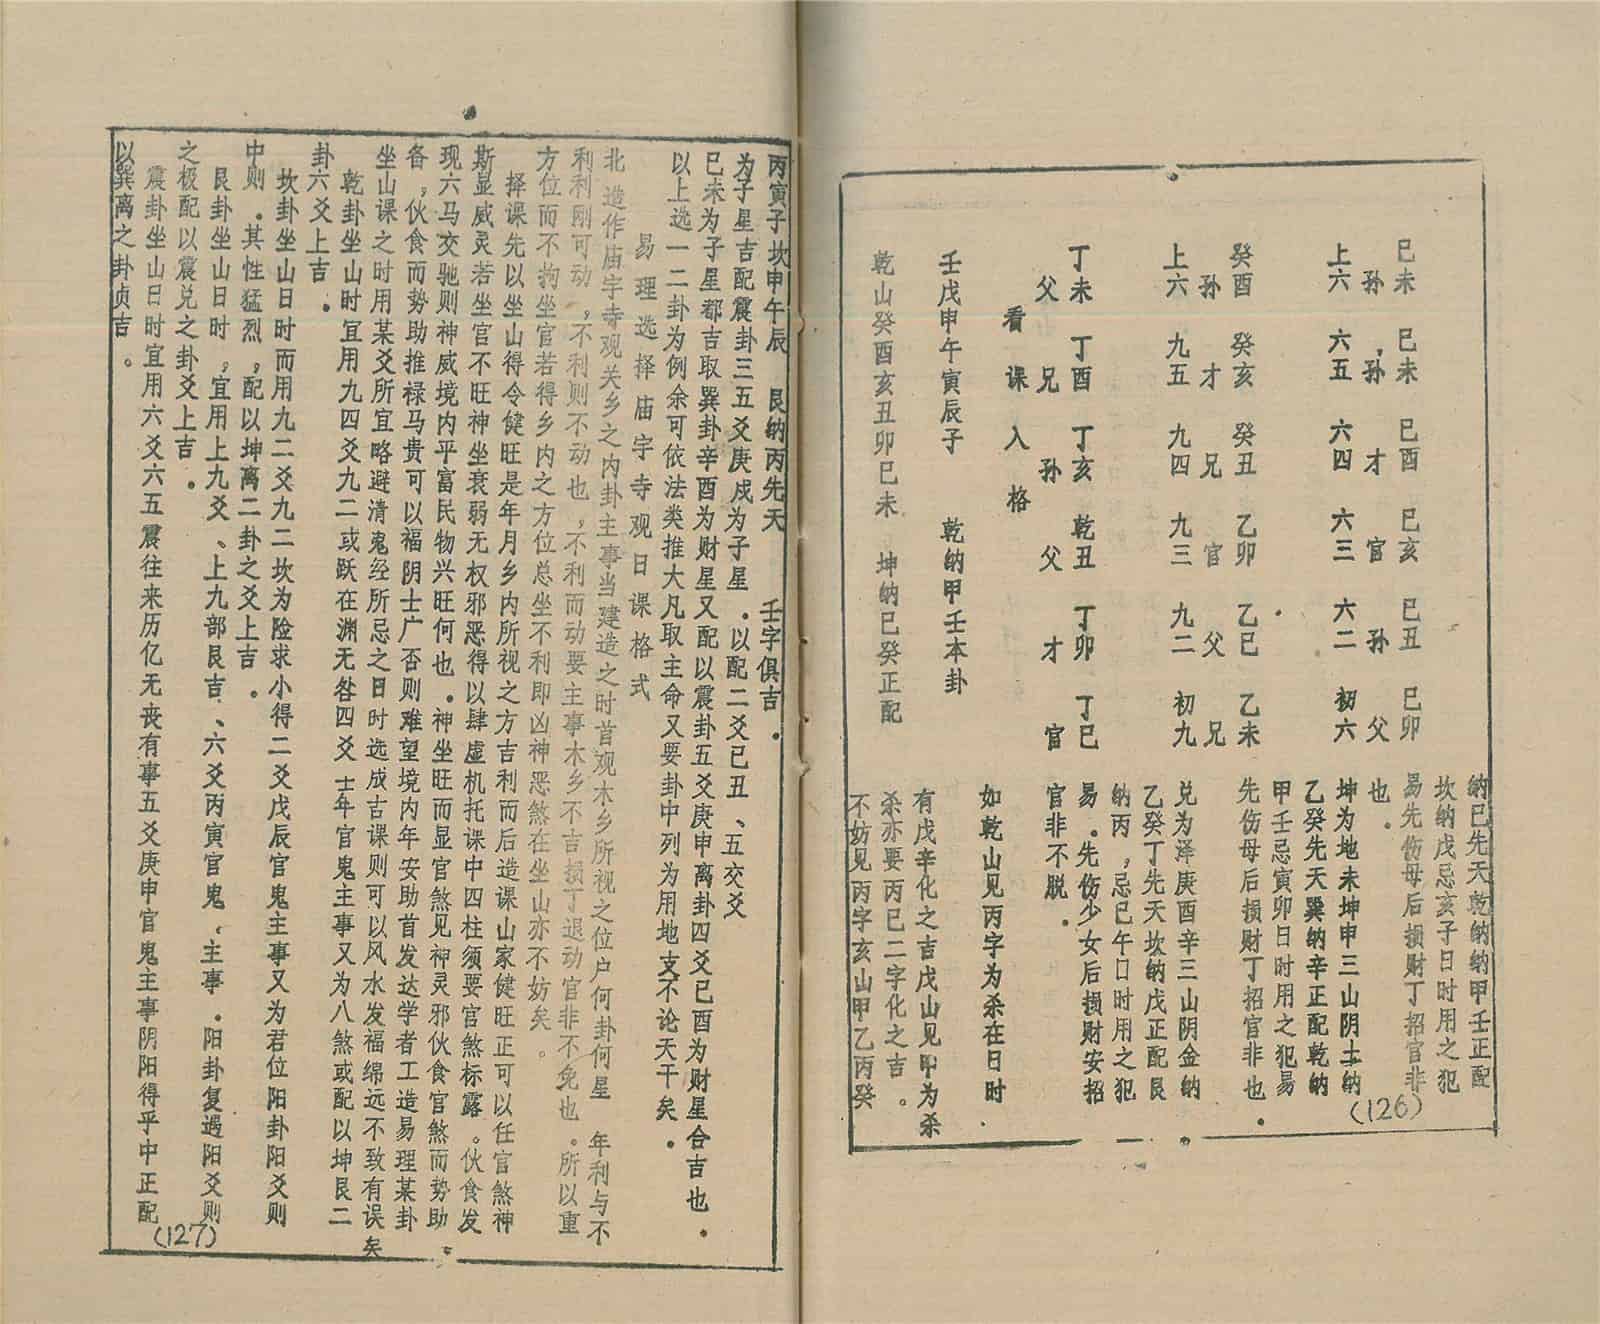 纳巳先天乾纳纳甲壬正配
坎纳戊忌亥子日时用之犯
易先伤母后损财丁招官非
也。
巳未 巳未 巳酉 巳亥 巳丑 巳卯
孙 孙 才 官 孙 父
上六 六五 六四 六三 六二 初六
坤为地未坤申三山阴土纳
乙癸先天巽纳辛正配乾纳
甲壬忌寅卯日时用之犯易
先伤母后损财丁招官非也.
癸酉 癸亥 癸丑 乙卯 乙巳 乙未
孙 才 兄 官 父 兄
上六 九五 九四 九三 九二 初九
兑为泽庚酉辛三山阴金纳
乙癸丁先天坎纳戊正配艮
纳丙,忌巳午口时用之犯
易.先伤少女后损财安招
官非不脱.
丁未 丁酉 丁亥 乾丑 丁卯 丁巳
父 兄 孙 父 才 官
看课入格
如乾山见丙字为杀在日时.
壬戊申午寅辰子 乾纳甲壬本卦
有戊辛化之吉戊山见甲为杀
杀亦要丙巳二字化之吉。
乾山癸酉亥丑卯巳未 坤纳巳癸正配
不妨见丙字亥山甲乙丙癸
(126)
丙寅子坎申午辰 艮纳丙先天 壬字俱吉.
为子星吉配震卦三五爻庚戍为子星.以配二爻已丑、五交爻
巳未为子星都吉取巽卦辛酉为财星又配以震卦五爻庚申离卦四爻己酉为财星合吉也.
以上选一二卦为例余可依法类推大凡取主命又要卦中列为用地支不论天干矣.
易理选择庙宇寺观日课格式
北造作庙宇寺观关乡之内卦主事当建造之时首观木乡所视之位户何卦何星 年利与不
利利刚可动,不利则不动也,不利而动要主事木乡不吉损丁退动官非不免也.所以重
方位而不拘坐官若得乡内之方位总坐不利即凶神恶煞在坐山亦不妨矣。
择课先以坐山得令健旺是年月乡内所视之方吉利而后造课山家健旺正可以任官煞神
斯显威灵若坐官不旺神坐衰弱无权邪恶得以肆虚机托课中四柱须要官煞标露.伙食发
现六马交驰则神威境内平富民物兴旺何也.神坐旺而显官煞见神灵邪伙食官煞而势助
备,伙食而势助推禄马贵可以福阴士广否则难望境内年安助首发达学者工造易理某卦
坐山课之时用某爻所宜略避清鬼经所忌之日时选成古课则可以风水发福绵远不致有误矣
乾卦坐山时宜用九四爻九二或跃在渊无咎四爻士年官鬼主事又为八煞或配以坤艮二
卦六爻上吉.
坎卦坐山日时而用九二爻九二坎为险求小得二爻戊辰官鬼主事又为君位阳卦阳爻则
中则.其性猛烈,配以坤离二卦之爻上吉.
艮卦坐山日时,宜用上九爻、上九部艮吉、六爻丙寅官鬼、主事.阳卦复遇阳爻则
之极配以震兑之卦爻上吉.
震卦坐山日时宜用六爻六五震往来历亿无丧有事五爻庚申官鬼主事阴阳得乎中正配
以巽离之卦贞吉。
(127)